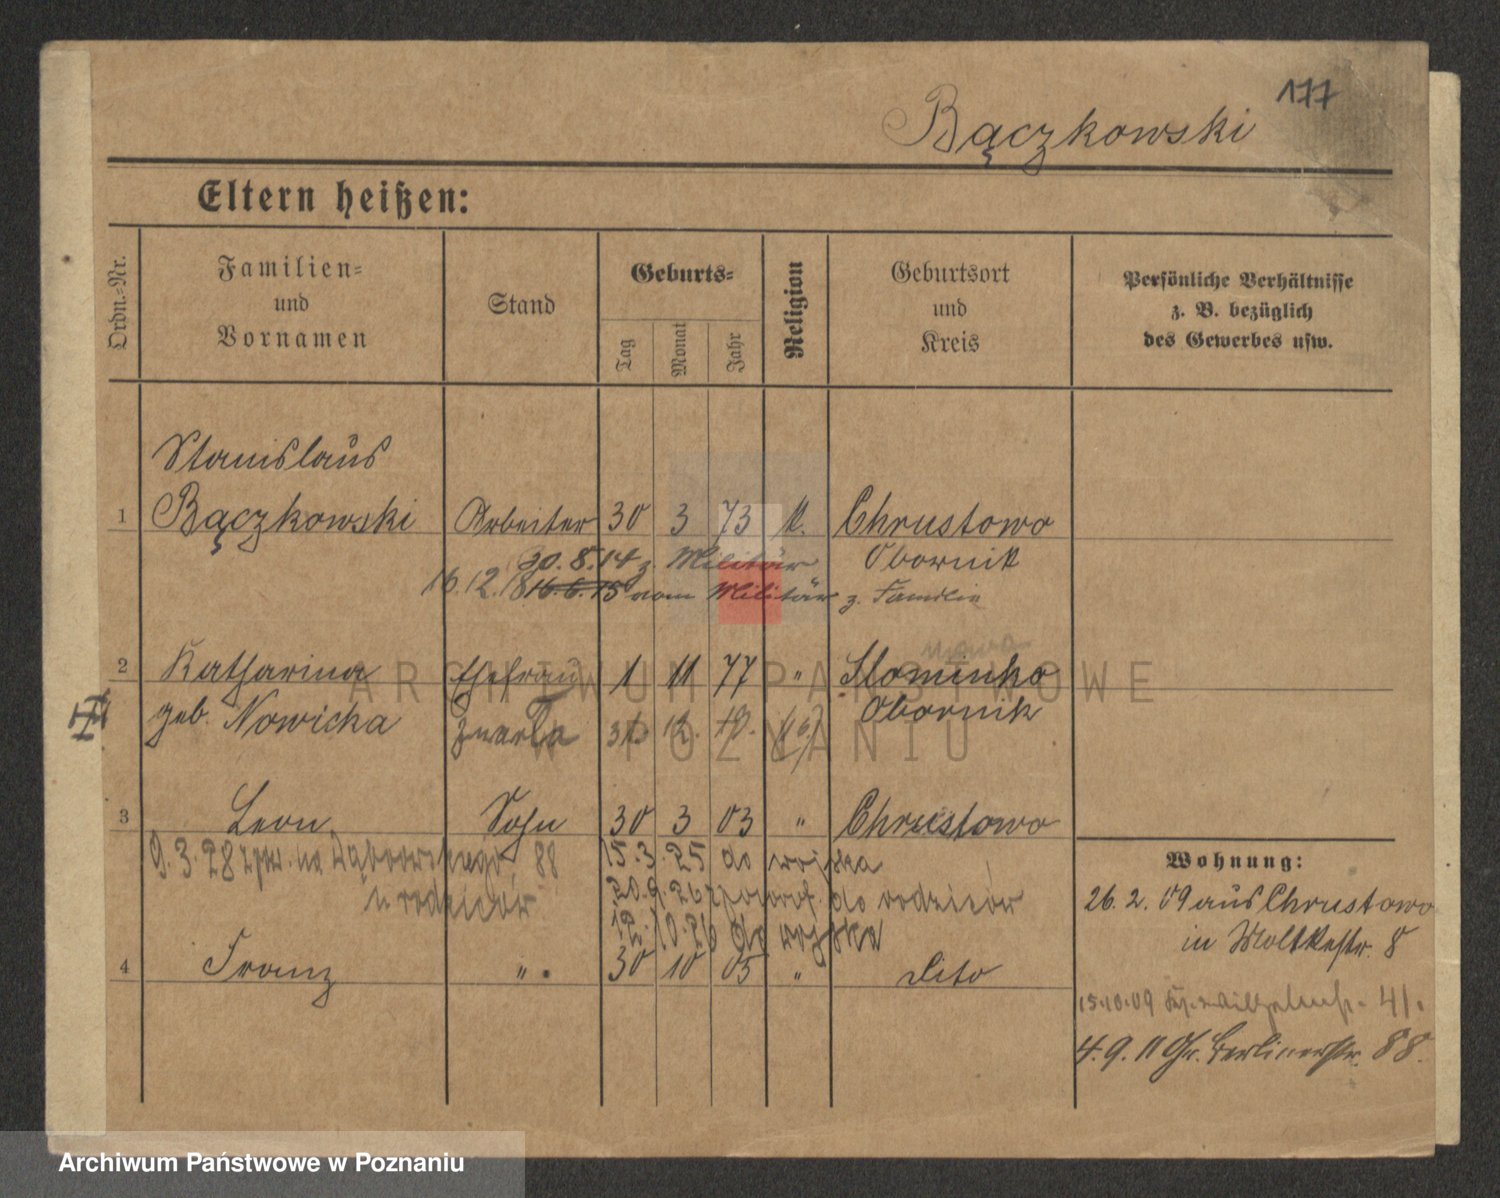 177
Bączkowski
Eltern heißen:
Ordn.-Nr.
Familien-
und
Vornamen
Stand
Geburts-
Tag
Monat
Jahr
Religion
Geburtsort
und
Kreis
Persönliche Verhältnisse
z. B. bezüglich
des Gewerbes usw.
Stanislaus
1 Bączkowski Arbeiter 30 3 73 k. Chrustowo
30.8.14 z. Militär Obornik
16.12.18 16.6.15 vom Militär z. Familie
2 Katharina Ehefrau 1 11 77 " Slominko
geb. Nowicka zmarła 31. 12. Obornik
3 Leon Sohn 30 3 03 " Chrustowo
9.3.28 na Dąbrowskiego 88 15.3.25 do wojska
u rodziców 20.9.26 do rodziców
12.10.26 do wojska
4 Franz " 30 10 05 " dito
Wohnung:
26.2.09 aus Chrustowo
in Moltkestr. 8
15.10.09 41.
4.9.11 Gr. Berlinerstr. 88.
ARCHIWUM PAŃSTWOWE
W POZNANIU
Archiwum Państwowe w Poznaniu